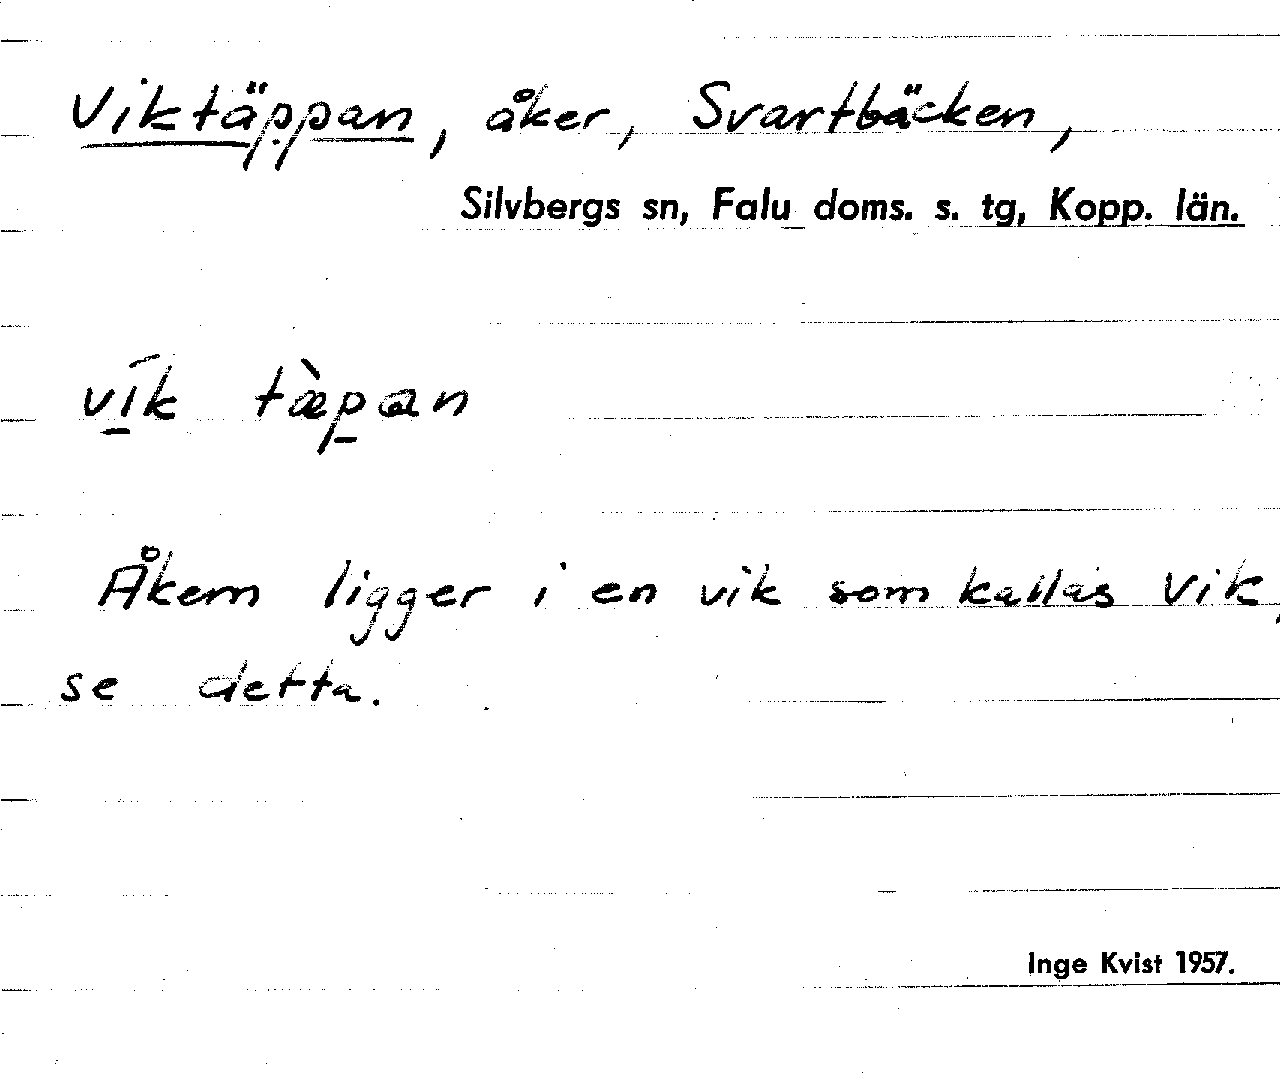 Viktäppan, åker, Svartbäcken,
Silvbergs sn, Falu doms. s. tg, Kopp. län.
vı̄́k tæ̀pan
Åkern ligger i en vik som kallas Vik,
se detta.
Inge Kvist 1957.